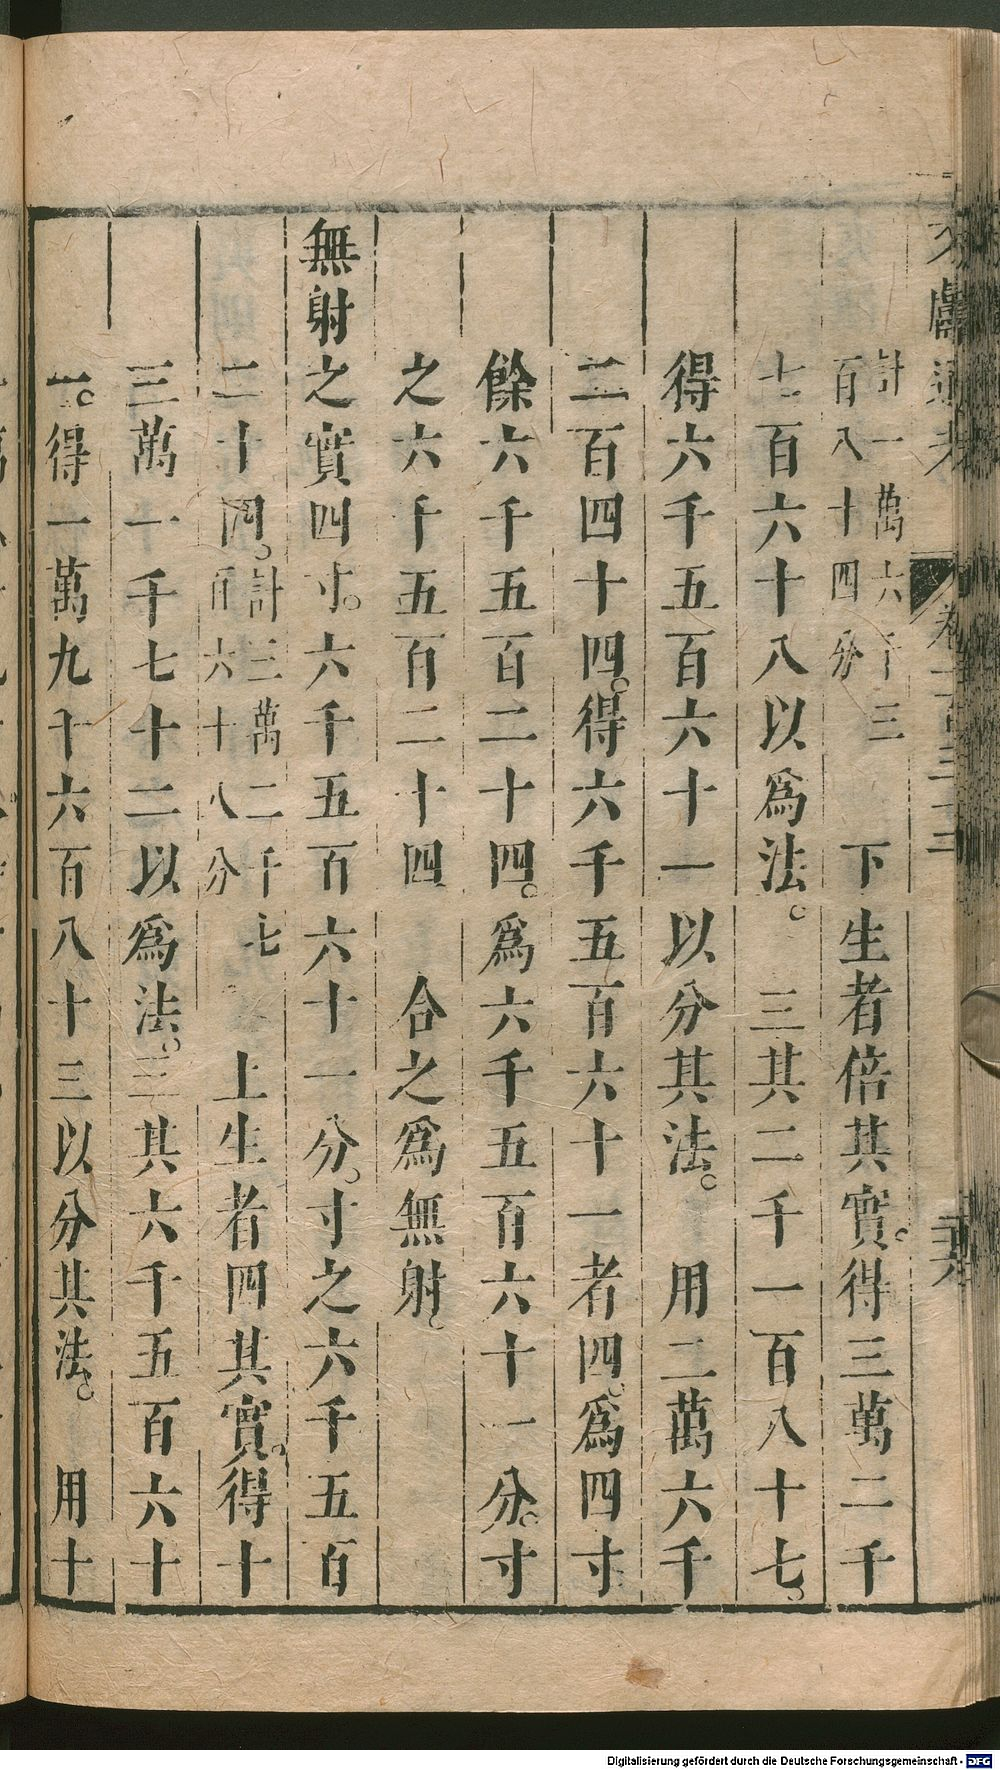 文獻通考 卷一百三十三
計一萬六千三百八十四分 下生者倍其實。得三萬二千
七百六十八以爲法。 三其二千一百八十七。
得六千五百六十一以分其法。 用二萬六千
二百四十四。得六千五百六十一者四。爲四寸
餘六千五百二十四。爲六千五百六十一分。寸
之六千五百二十四 合之爲無射。
無射之實四寸。六千五百六十一分。寸之六千五百
二十四。計三萬二千七百六十八分 上生者四其實。得十
三萬一千七十二以爲法。三其六千五百六十
一。得一萬九千六百八十三以分其法。 用十
Digitalisierung gefördert durch die Deutsche Forschungsgemeinschaft - DFG